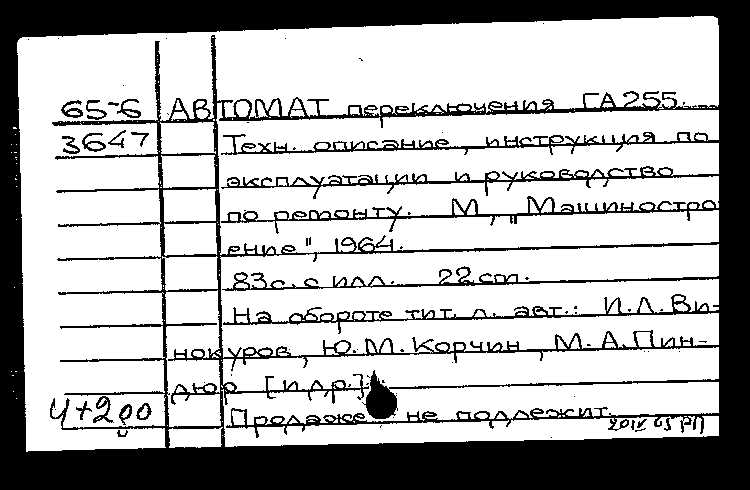 65-6 АВТОМАТ переключения ГА255.
3647 Техн. описание, инструкция по
эксплуатации и руководство
по ремонту. М, „Машиностро
ение", 1964.
83с. с илл. 22см.
На обороте тит. л. авт.: И.Л.Ви-
нокуров, Ю.М.Корчин, М.А.Пин-
дюр [и др.]
4+200 Продаже не подлежит.